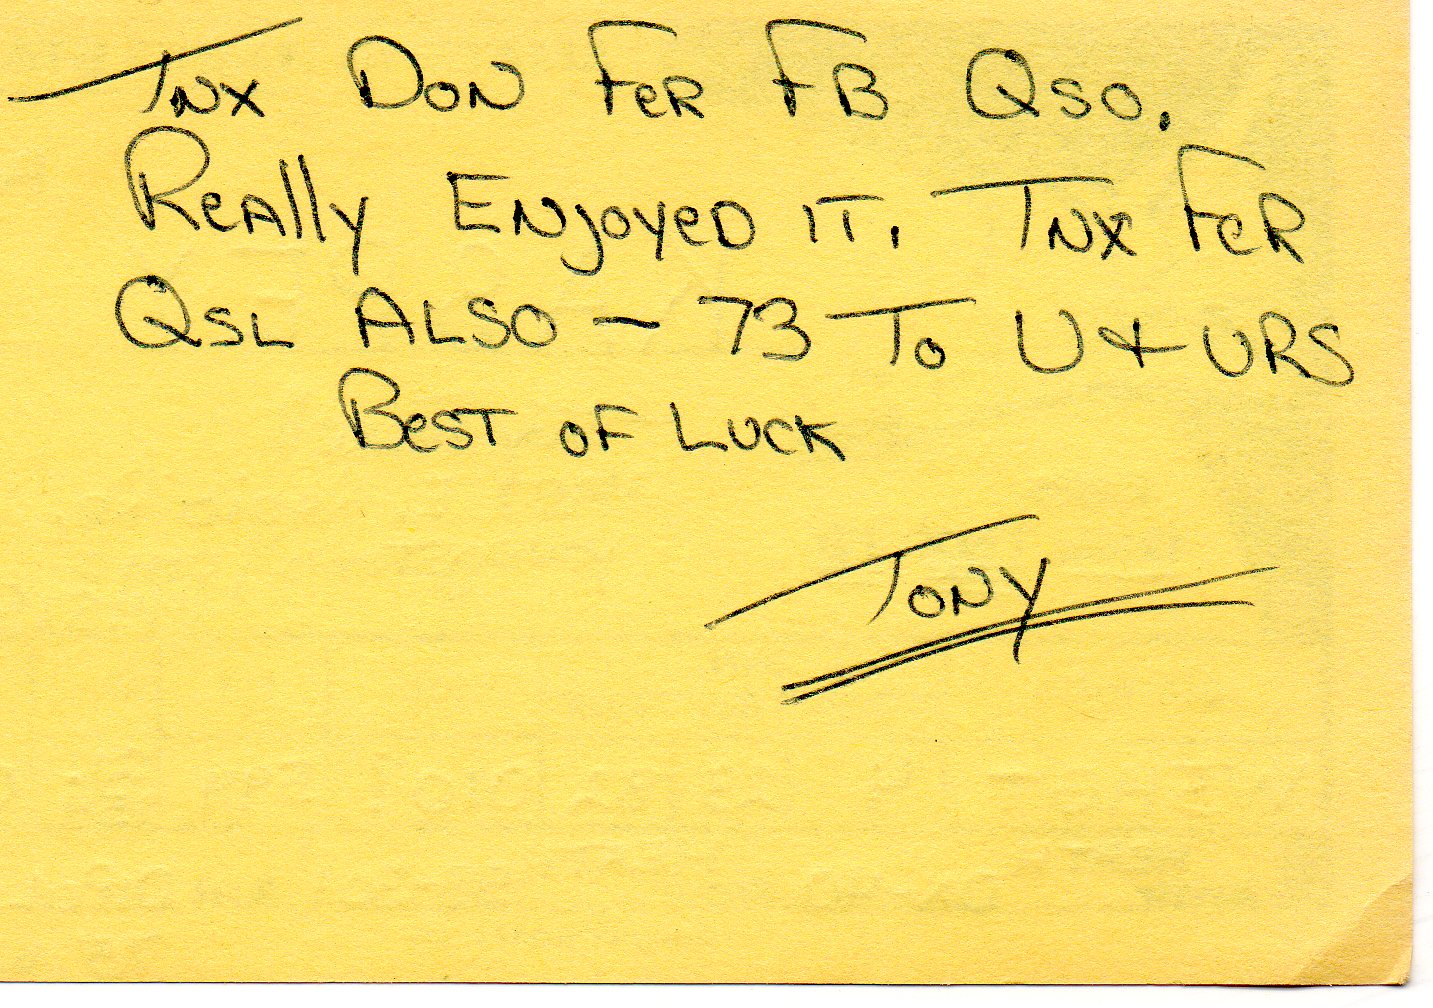 Tnx Don Fer FB Qso.
Really Enjoyed it. Tnx Fer
Qsl Also - 73 To U & URS
Best of Luck
Tony